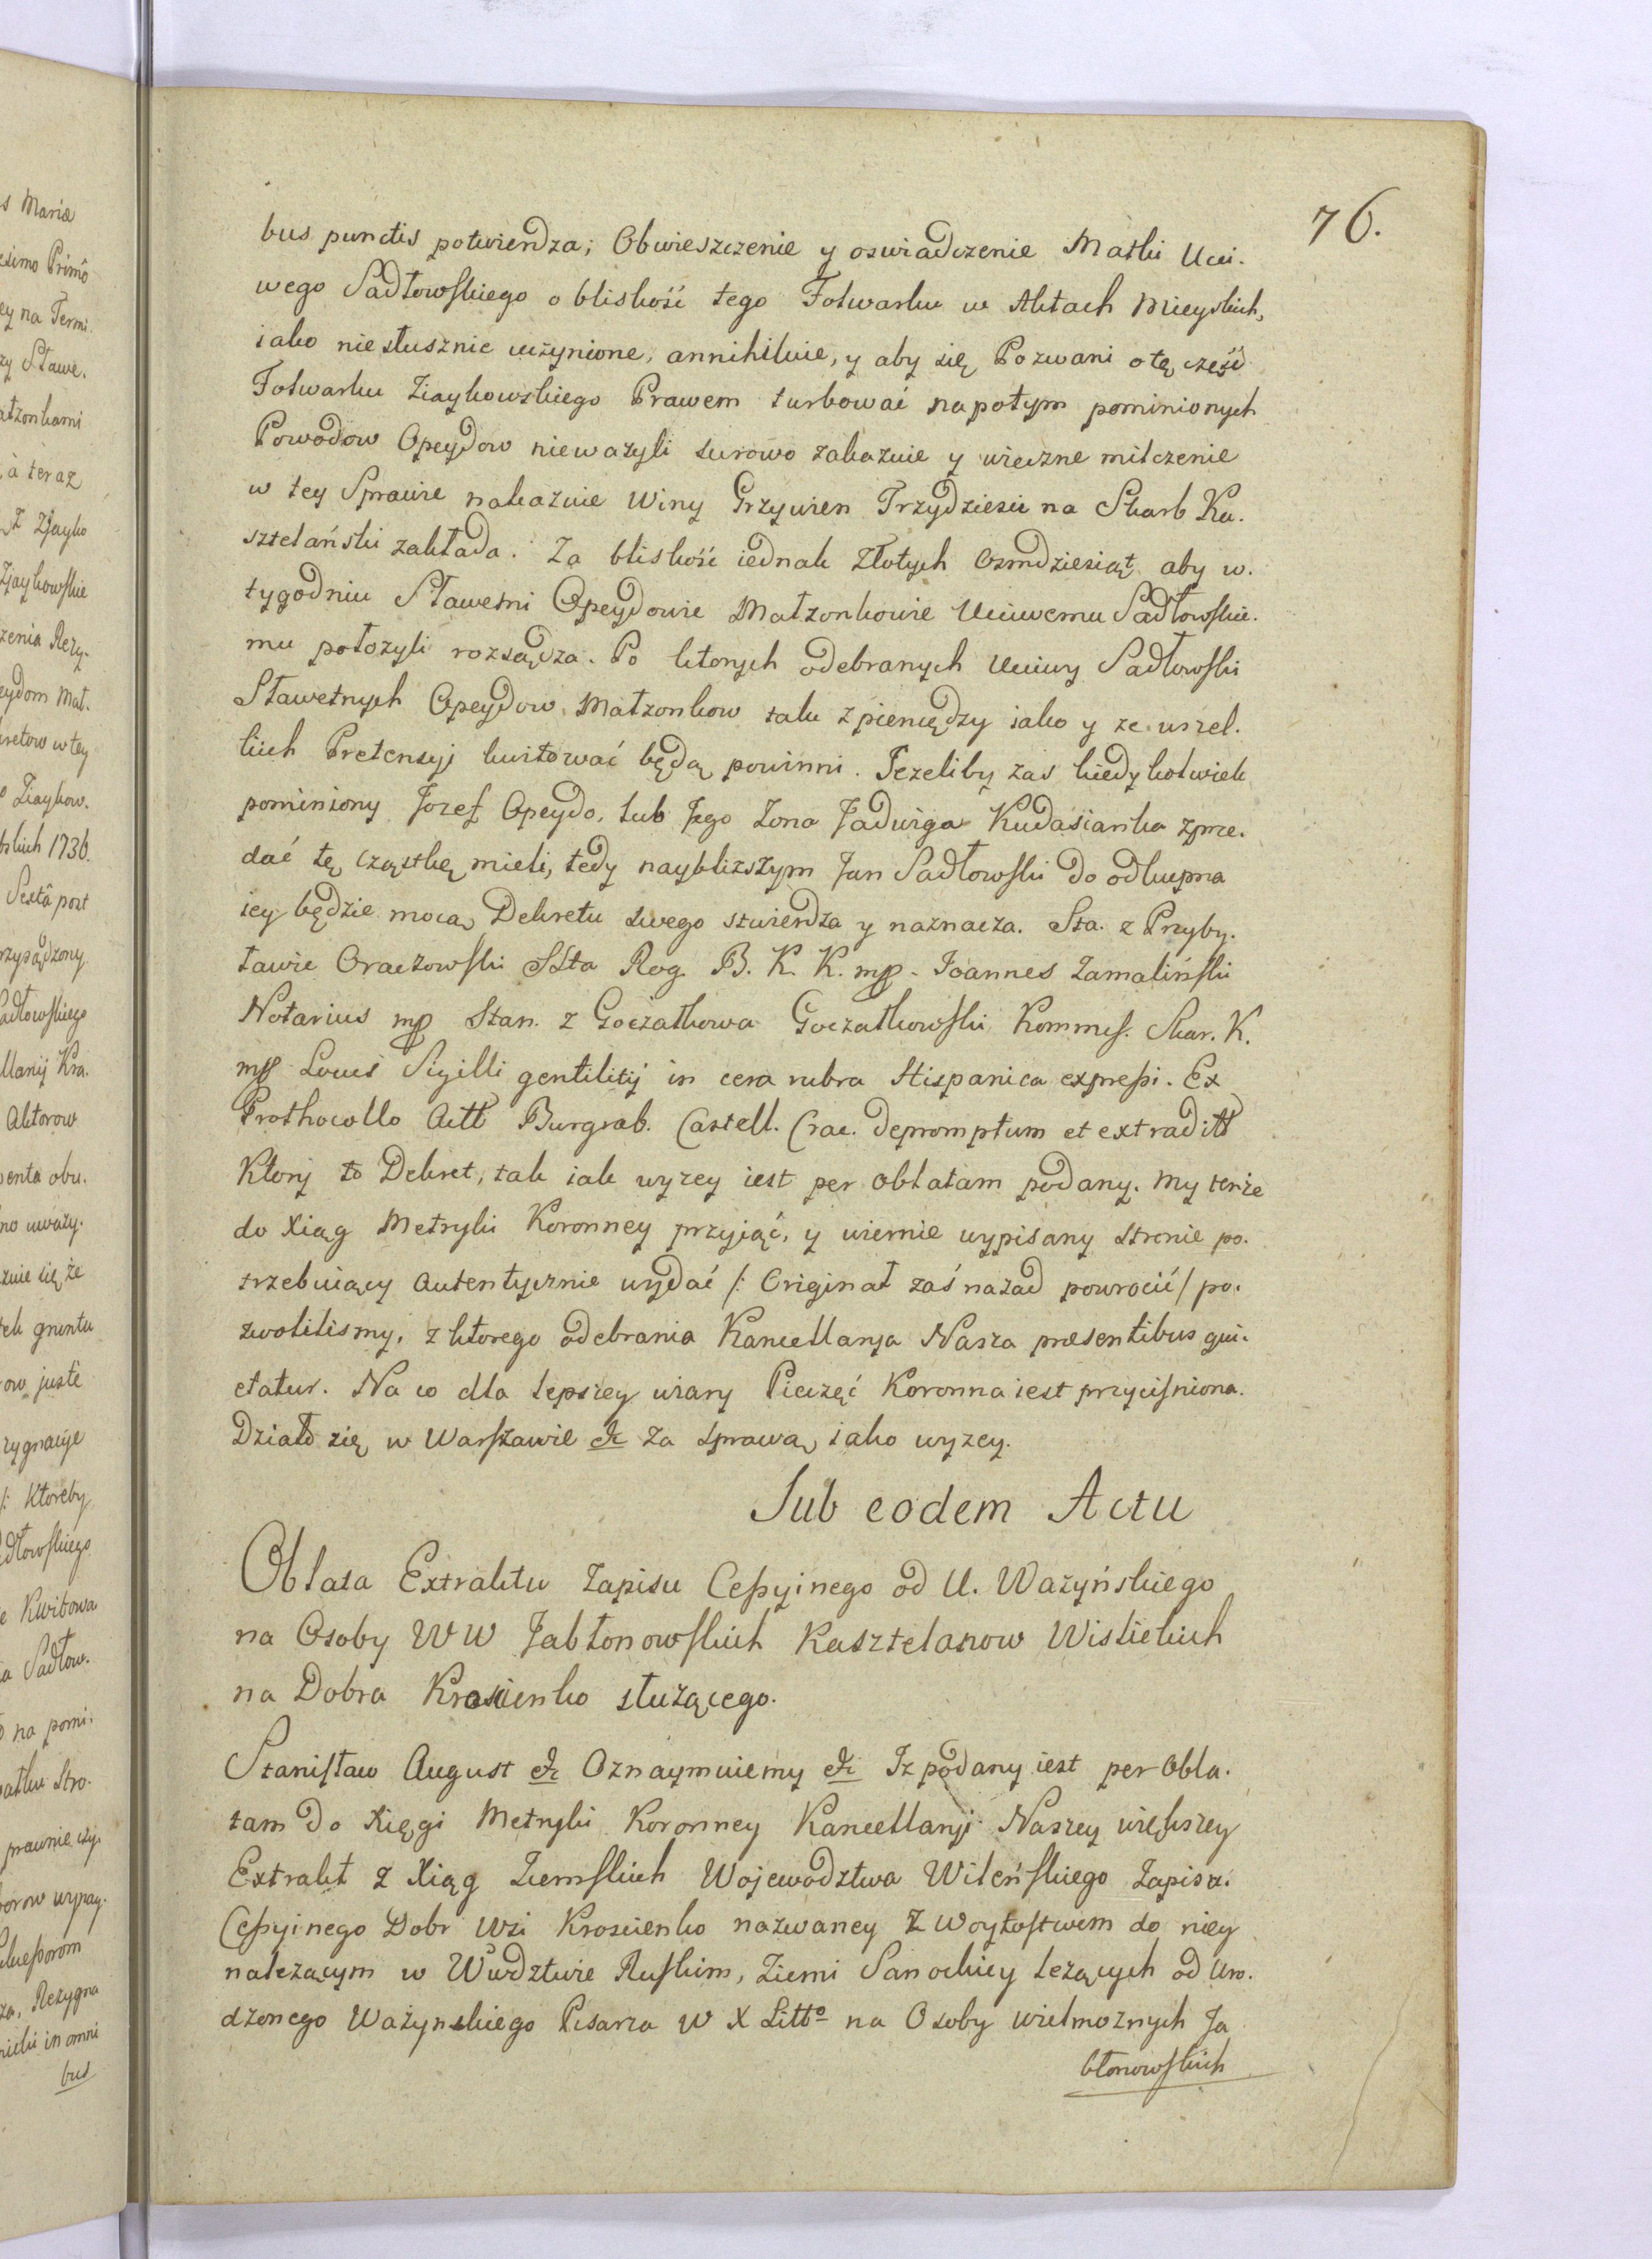 76.
bus punctis potwierdza; Obwieszczenie y oswiadczenie Matki Ucci.
wego Sadłowskiego o bliskość tego Folwarku w Aktach Mieyskich,
iako niesłusznie uczynione, annihiluie, y aby się Pozwani o tę część
Folwarku Ziaykowskiego Prawem turbować napotym pominionych
Powodow Opeydow nieważyli surowo zakazuie y wieczne milczenie
w tey Sprawie nakazuie Winy Grzywien Trzydzieści na Skarb Ka.
sztelański zakłada. Za bliskość iednak Złotych Osmdziesiąt aby w.
tygodniu Sławetni Opeydowie Małzonkowie Ucciwemu Sadłowskie.
mu połozyli rozsądza. Po ktorych odebranych Ucciwy Sadłowski
Sławetnych Opeydow Małzonkow tak z pieniędzy iako y ze wszel.
kich Pretensyi kwitować będą powinni. Jezeliby zas kiedykolwiek
pominiony Jozef Opeydo, lub Jego Zona Jadwiga Kudasianka zprze.
dać tę cząstkę mieli, tedy naybliższym Jan Sadłowski do odkupna
iey będzie mocą Dekretu swego stwierdza y naznacza. Sta. z Przyby.
ławic Oraczowski SSta Rog. B. K. K. mp. Joannes Zamaliński
Notarius mp Stan. z Goczałkowa Goczałkowski Kommiss. Skar. K.
mp Locus Sigilli gentilitij in cera rubra Hispanica expressi. Ex
Prothocollo Actt Burgrab. Castell. Crac. depromptum et extraditt
Ktory to Dekret, tak iak wyzey iest per Oblatam podany. My tenże
do Xiąg Metryki Koronney przyjąć, y wiernie wypisany Stronie po.
trzebuiący autentycznie wydać /: Originał zaś nazad powrocić / po.
zwolilismy, z ktorego odebrania Kancellarya Nasza præsentibus qui.
etatur. Na co dla lepszey wiary Pieczęć Koronna iest przyciśniona.
Działo się w Warszawie &c za sprawą iako wyzey.
Sub eodem Actu
Oblata Extraktu Zapisu Cessyinego od U. Ważyńskiego
na Osoby WW Jabłonowskich Kasztelanow Wislickich
na Dobra Krościenko służącego.
Stanisław August &c Oznaymuiemy &c Iz podany iest per Obla.
tam do Xięgi Metryki Koronney Kancellaryi Naszey większey
Extrakt z Xiąg Ziemskich Wojewodztwa Wileńskiego Zapisu
Cessyinego Dobr Wsi Kroscienko nazwaney z Woytostwem do niey
należącym w Wwdztwie Ruskim, Ziemi Sanockiey leżących od Uro.
dzonego Ważynskiego Pisarza W X Litto na Osoby wielmoznych Ja
błonowskich